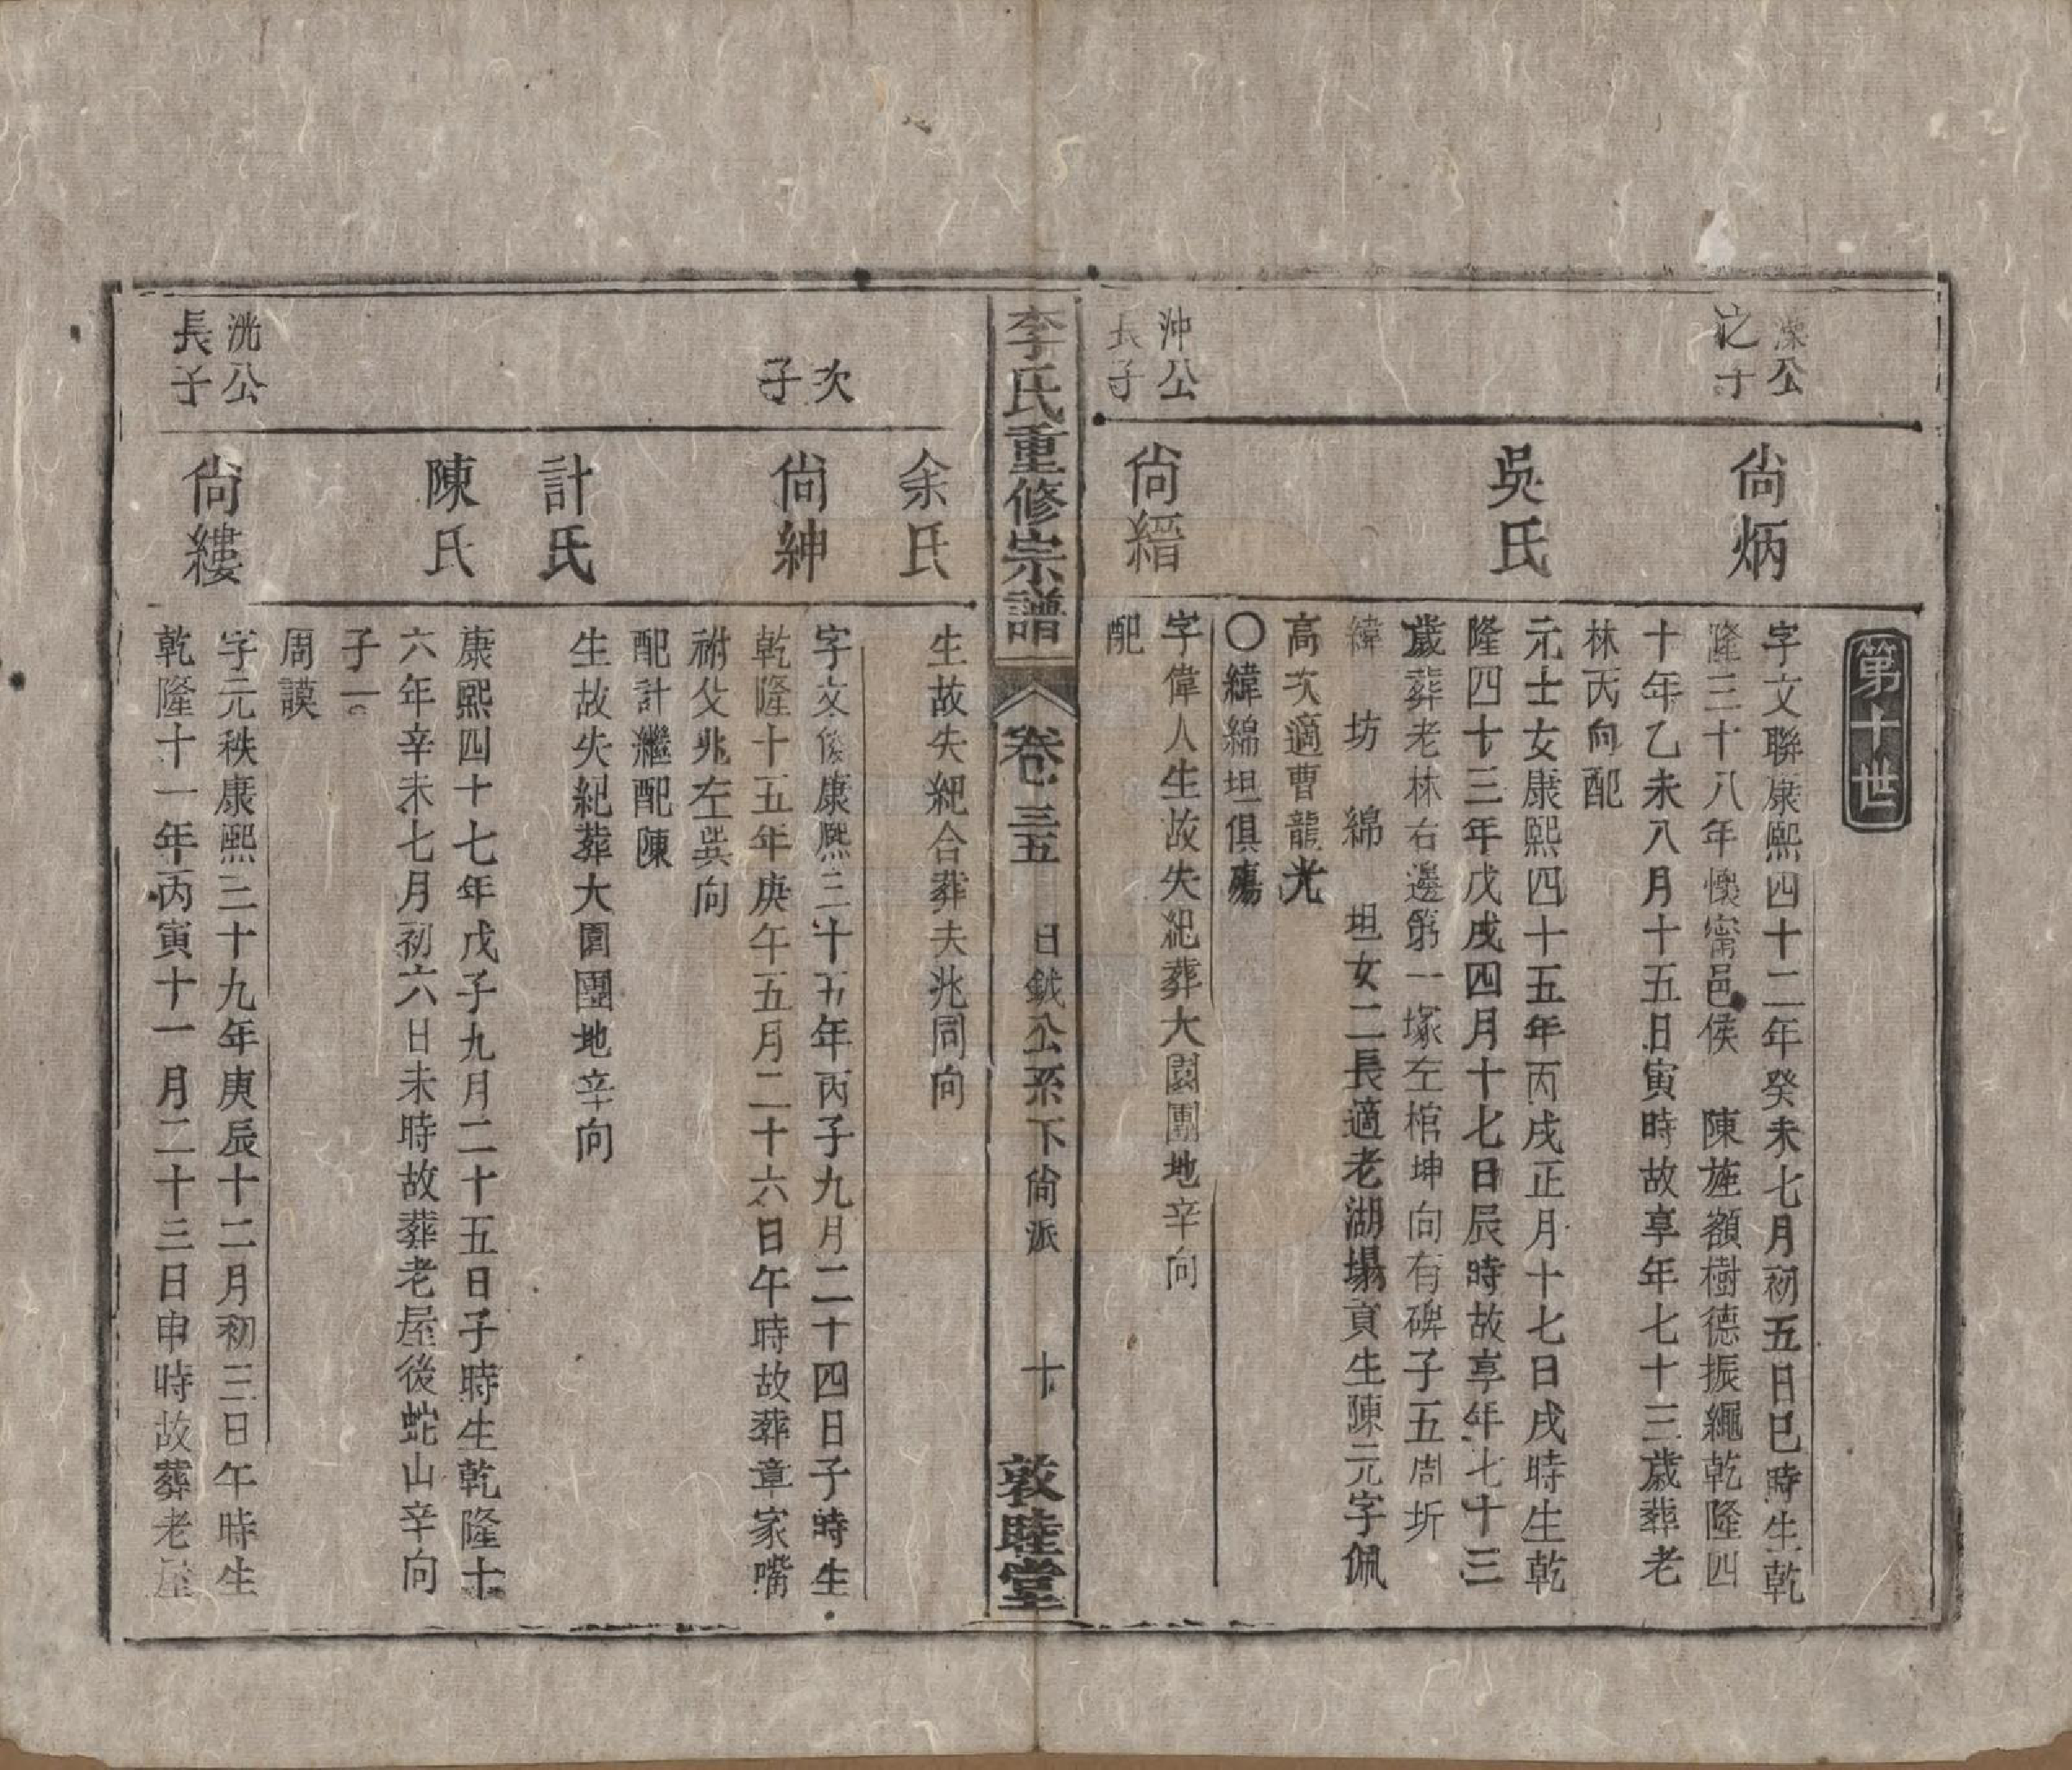 第十世
澡公
之子
尙炳
字文聯康熙四十二年癸未七月初五日巳時生乾
隆三十八年懷甯邑侯　陳旌額樹德振繩乾隆四
十年乙未八月十五日寅時故享年七十三歲葬老
林丙向配
吳氏
元士女康熙四十五年丙戌正月十七日戌時生乾
隆四十三年戊戌四月十七日辰時故享年七十三
歲葬老林右邊第一塚左棺坤向有碑子五周圻
緯　坊　綿　坦女二長適老湖塲貢生陳元字佩
高次適曹龍光
〇緯綿坦俱殤
沖公
長子
尙縉
字偉人生故失紀葬大園團地辛向
配
李氏重修宗譜
卷三五　日鉞公系下尙派　十
敦睦堂
余氏
生故失紀合葬夫兆同向
次
子
尙紳
字文俊康熙三十五年丙子九月二十四日子時生
乾隆十五年庚午五月二十六日午時故葬章家嘴
祔父兆左巽向
配計繼配陳
計氏
生故失紀葬大園團地辛向
陳氏
康熙四十七年戊子九月二十五日子時生乾隆十
六年辛未七月初六日未時故葬老屋後蛇山辛向
子一
周謨
洸公
長子
尙縷
字元秩康熙三十九年庚辰十二月初三日午時生
乾隆十一年丙寅十一月二十三日申時故葬老屋